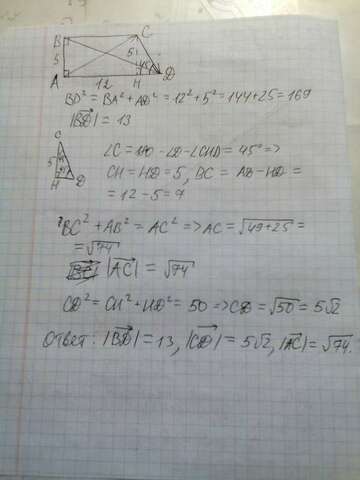 B C
5 5 45
A 12 H D
BD² = BA² + AD² = 12² + 5² = 144 + 25 = 169
|BD| = 13
C
5
H D
∠C = 180 - ∠D - ∠CHD = 45° =>
CH = HD = 5, BC = AD - HD =
= 12 - 5 = 7
BC² + AB² = AC² => AC = √49+25 =
= √74
|AC| = √74
CD² = CH² + HD² = 50 => CD = √50 = 5√2
Ответ: |BD| = 13, |CD| = 5√2, |AC| = √74.